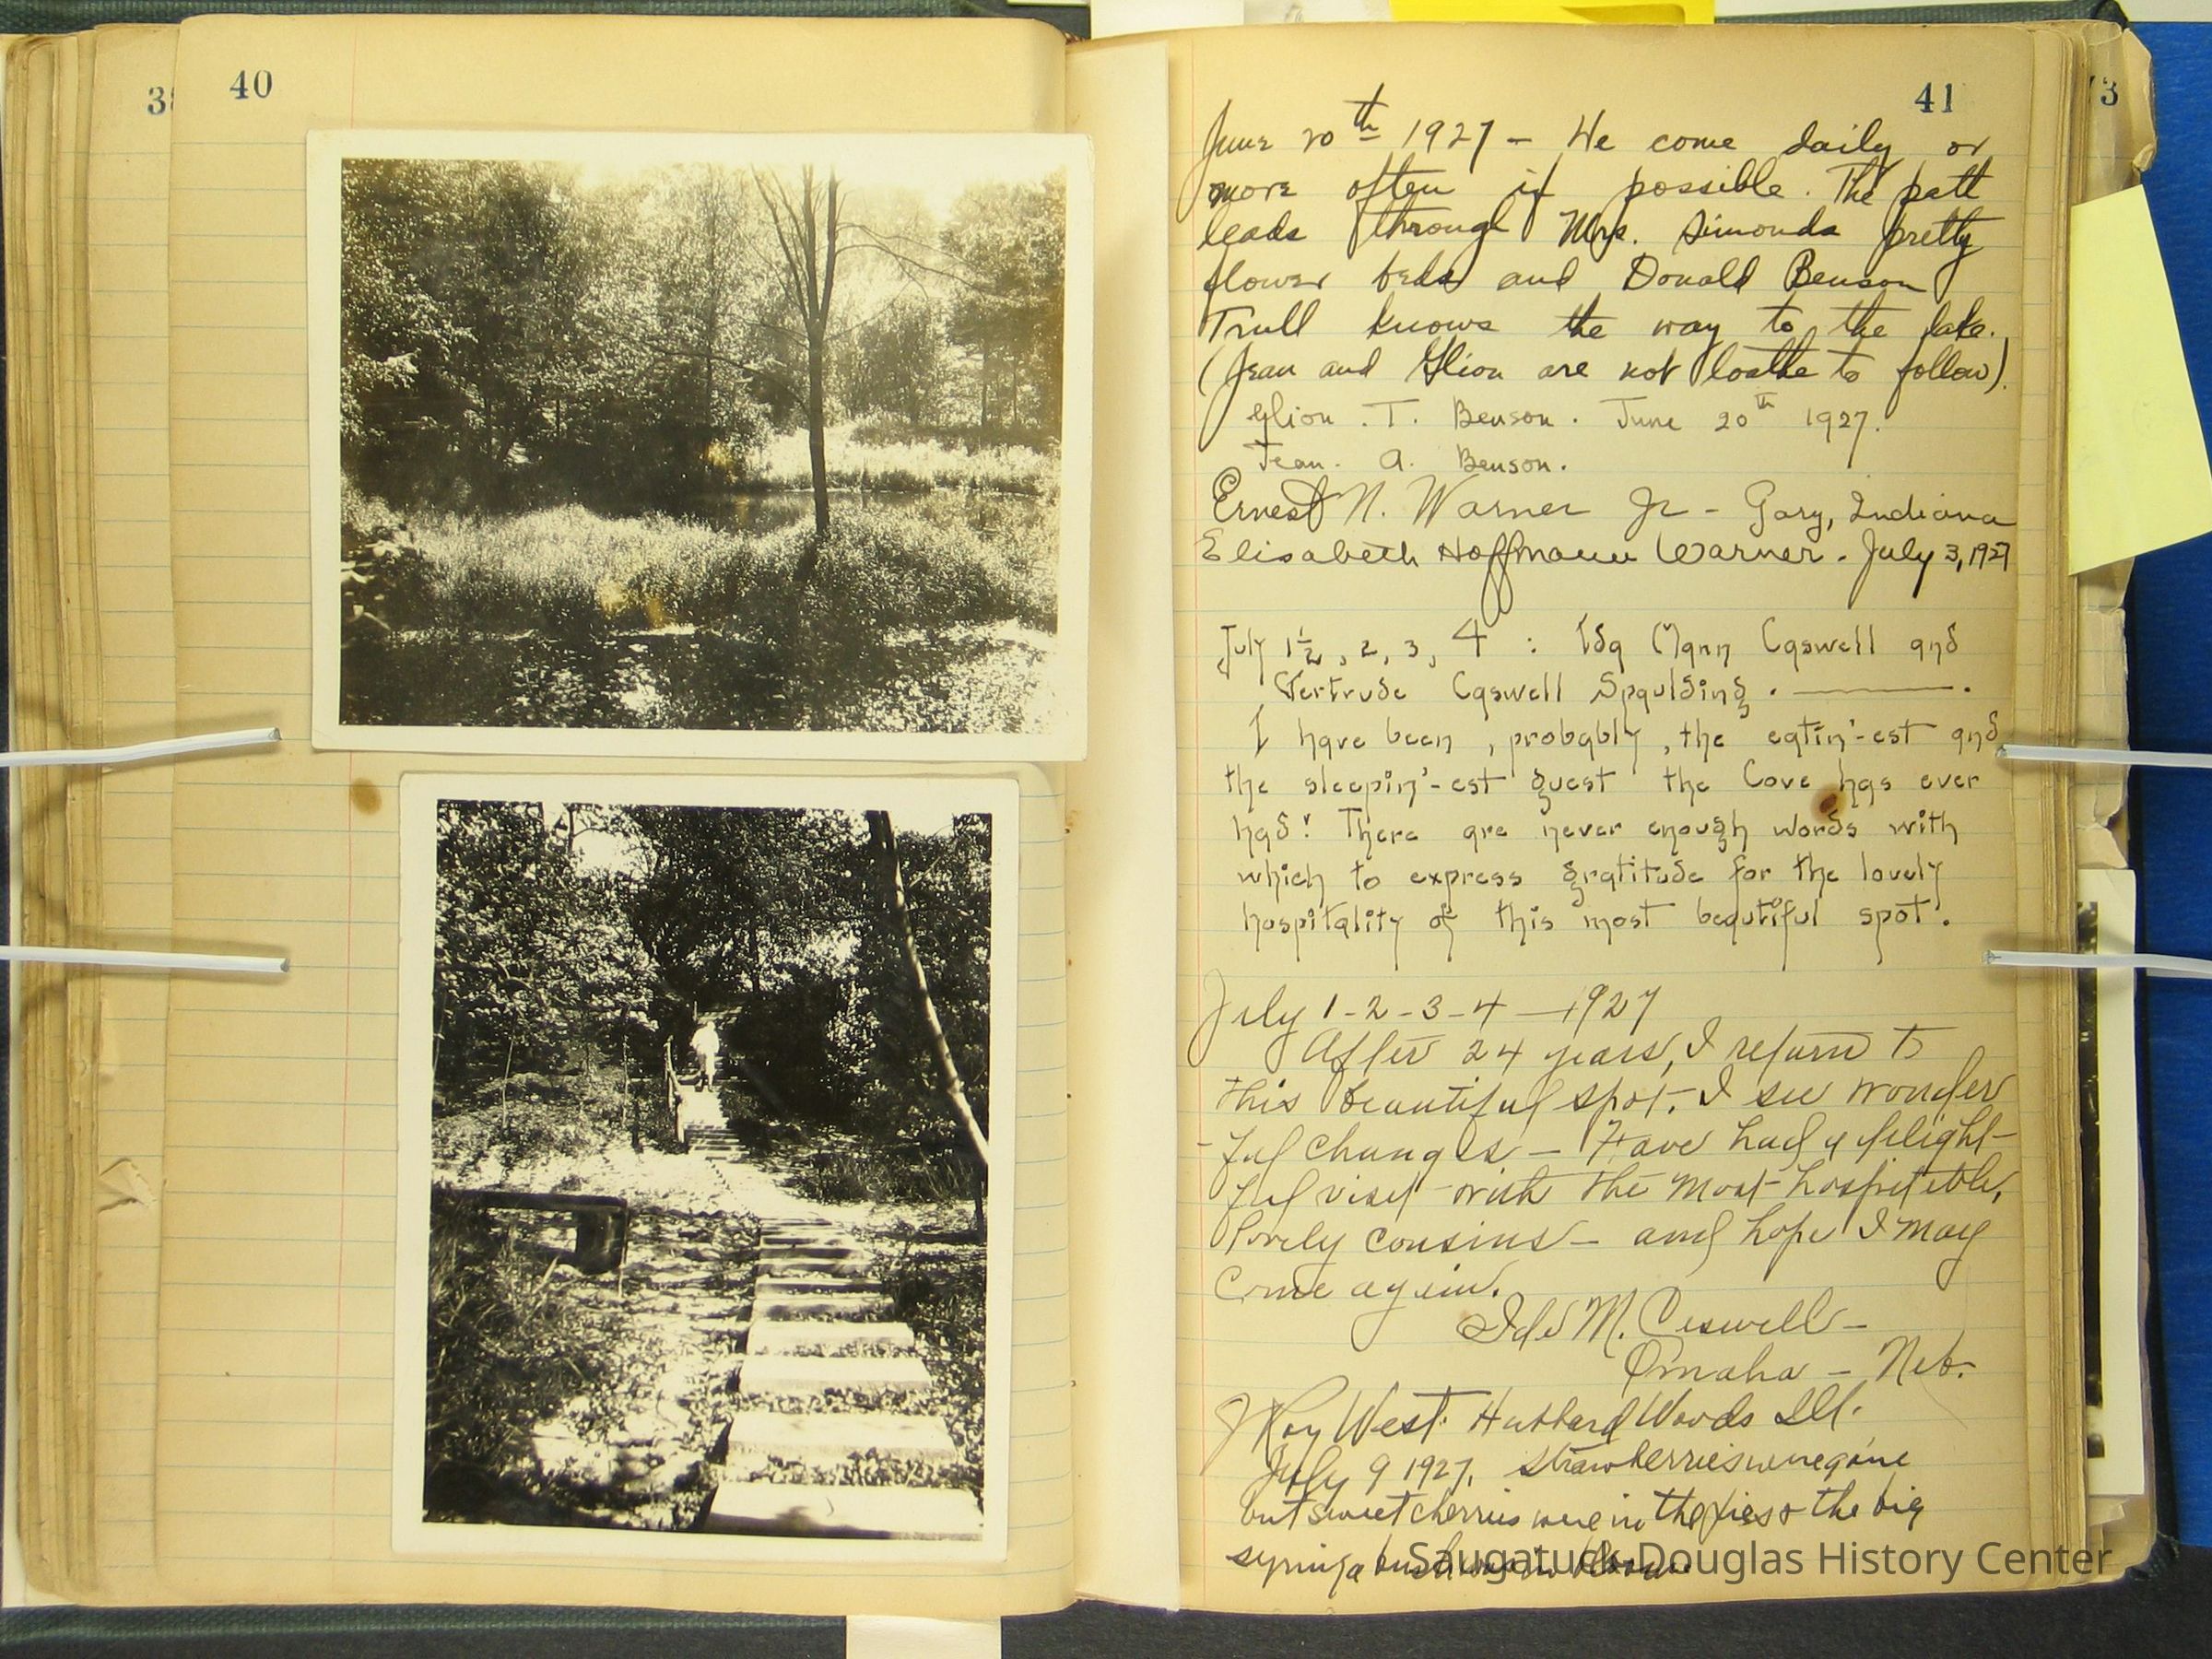 40
41
June 20th 1927 - We come daily or
more often if possible. The path
leads through Mrs. Simonds pretty
flower beds and Donald Benson
Trull knows the way to the lake.
(Jean and Glion are not loathe to follow).
Glion. T. Benson. June 20th 1927.
Jean. A. Benson.
Ernest N. Warner Jr - Gary, Indiana
Elisabeth Hoffmann Warner. July 3, 1927
July 1½, 2, 3, 4 : Ida Mann Caswell and
Gertrude Caswell Spaulding. ———.
I have been, probably, the eatin'-est and
the sleepin'-est guest the Cove has ever
had! There are never enough words with
which to express gratitude for the lovely
hospitality of this most beautiful spot.
July 1-2-3-4—1927
After 24 years, I return to
this beautiful spot. I see wonder
-ful changes - Have had a delight-
ful visit with the most hospitable,
lovely cousins - and hope I may
come again.
Ida M. Caswell -
Omaha - Neb.
Roy West. Hubbard Woods Ill.
July 9 1927. Strawberries were gone
but sweet cherries were in the pies & the big
syringa bush was in bloom
Saugatuck-Douglas History Center